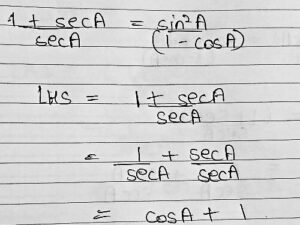 1 + secA = sin²A
secA (1 - cosA)
LHS = 1 + secA
secA
= 1 + secA
secA secA
= cosA + 1